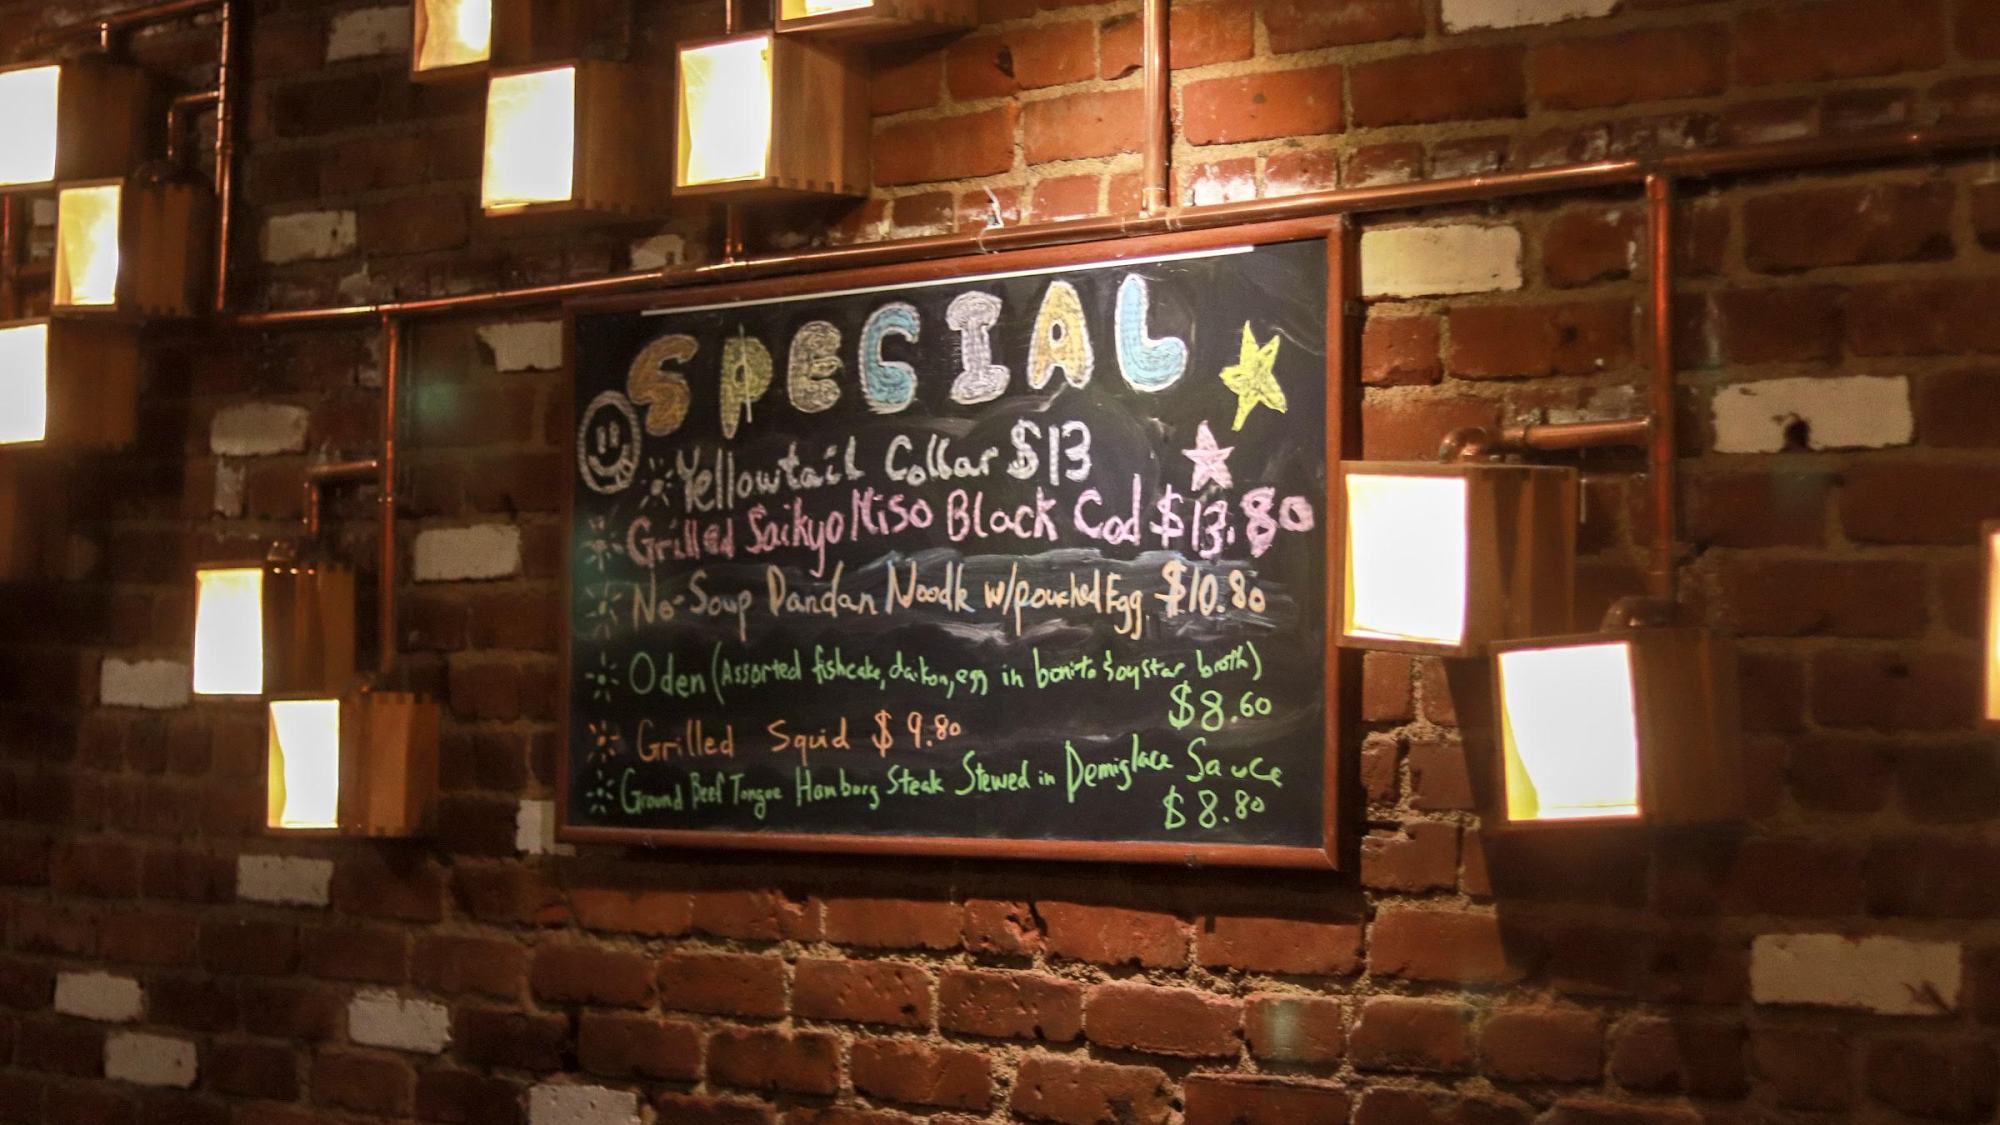 SPECIAL
Yellowtail Collar $13
Grilled Saikyo Miso Black Cod $13.80
No-Soup Dandan Noodle w/pouched Egg $10.80
Oden (Assorted fishcake, daikon, egg in bonito broth)
$8.60
Grilled Squid $9.80
Ground Beef Tongue Hamburg Steak Stewed in Demiglace Sauce
$8.80